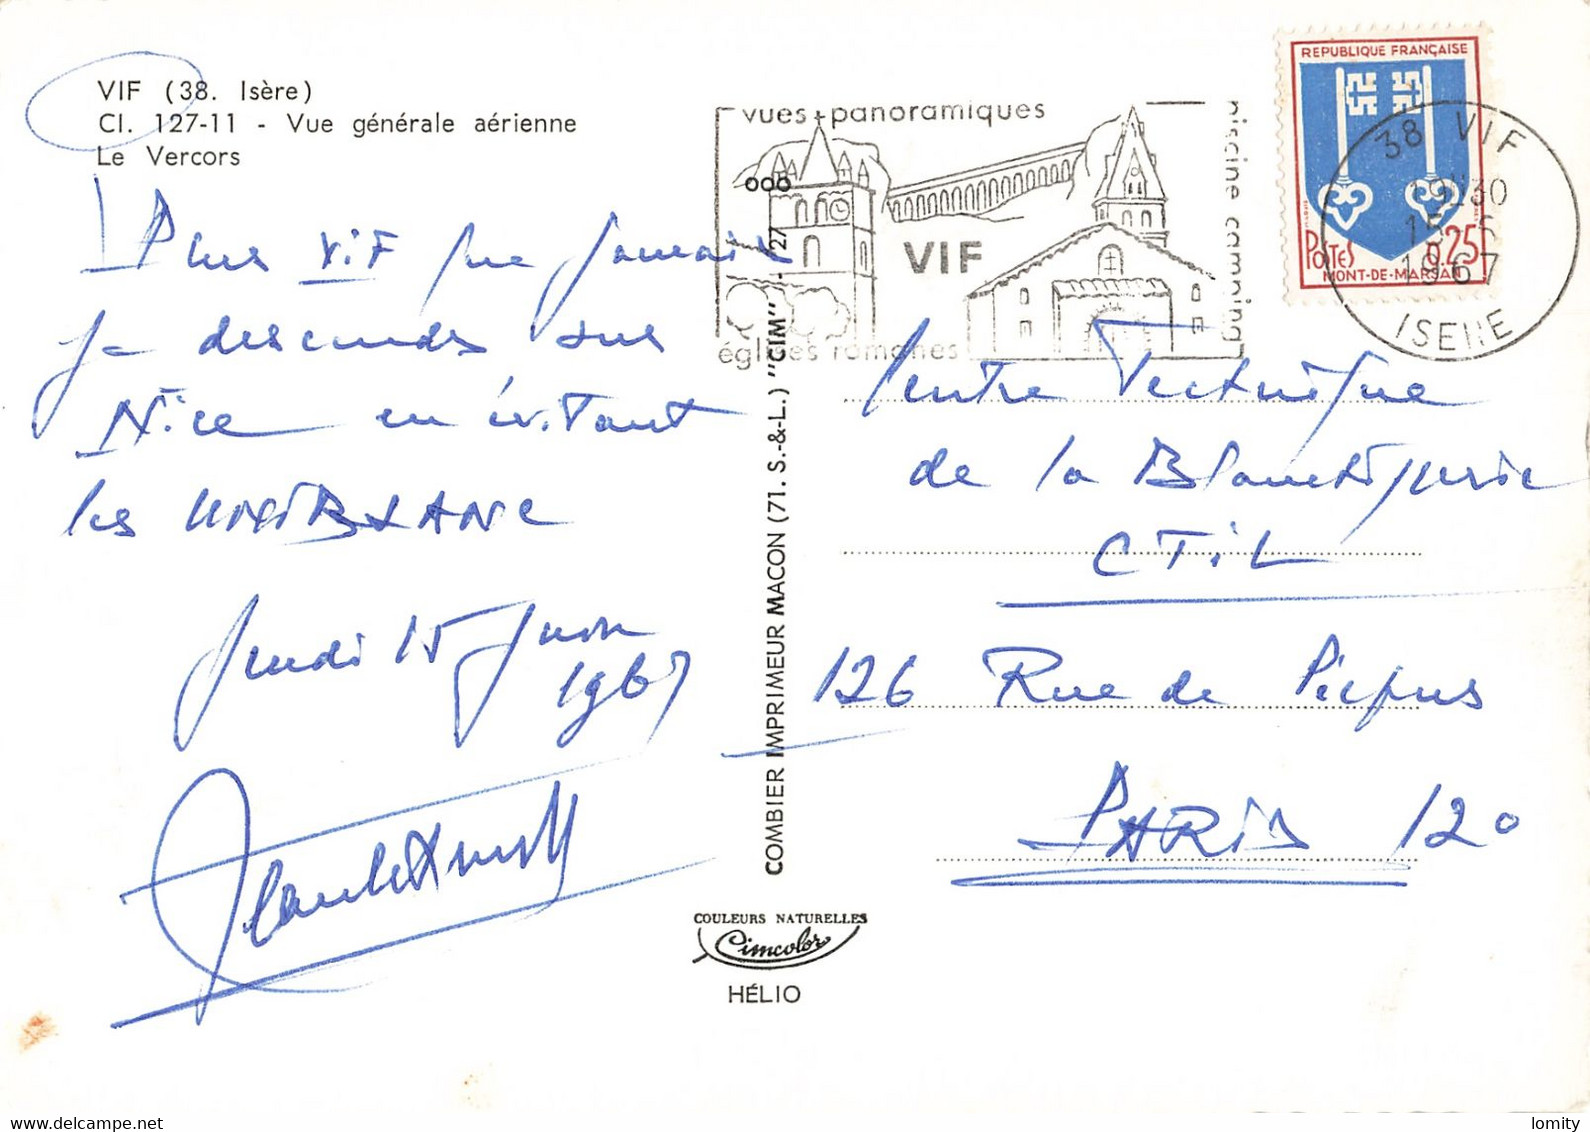 VIF (38. Isère)
Cl. 127-11 - Vue générale aérienne
Le Vercors
Plus ViF que jamais
je descends sur
Nice en évitant
les
Jeudi 15 Juin
1967
vues panoramiques
piscine camping
VIF
églises romanes
REPUBLIQUE FRANÇAISE
POSTES 0.25
MONT-DE-MARSAN
38 VIF
19H30
15-6
1967
ISERE
COMBIER IMPRIMEUR MACON (71. S.-&-L.) "CIM"
Centre Technique
de la Blanchisserie
CTiL
126 Rue de Picpus
PARIS 12o
COULEURS NATURELLES
Cimcolor
HÉLIO
lomity